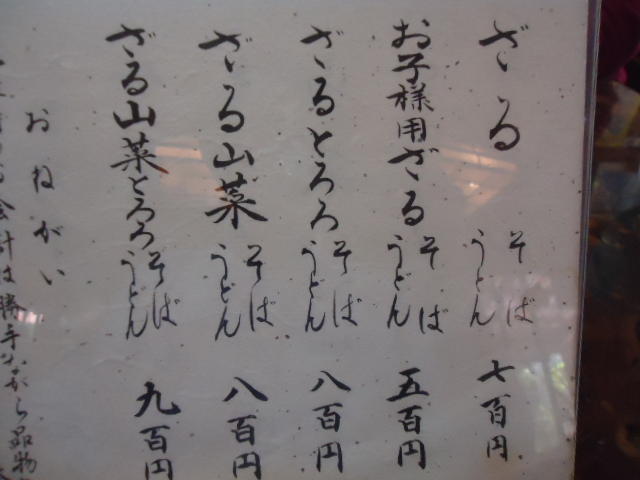 ざる そば うどん 七百円
お子様用ざる そば うどん 五百円
ざるとろろ そば うどん 八百円
ざる山菜 そば うどん 八百円
ざる山菜とろろ そば うどん 九百円
おねがい
会計は勝手ながら品物